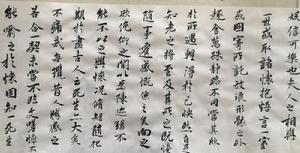 娛信可樂也夫人之相與
一世或取諸懷抱悟言一室
或因寄所託放浪形骸之外
趣舍萬殊靜躁不同當其欣
於所遇暫得於己快然自足
知老之將至及其所之既惓
隨事遷感慨係之矣向之
欣俛仰之閒以為陳迹猶不
能不以之興懷況脩短隨化
期於盡古人云死生亦大矣
不痛哉每攬昔人興感之
若合一契未嘗不臨文嗟悼
能喻之於懷固知一死生